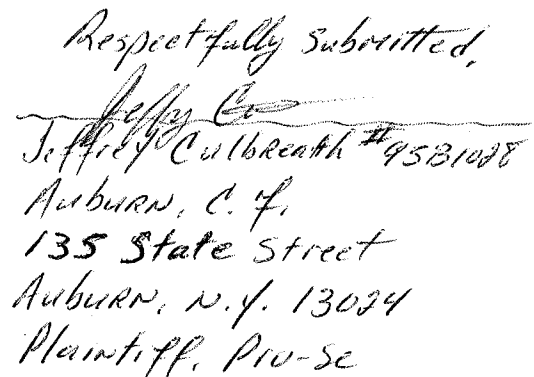 Respectfully submitted,
Jeffrey Culbreath #95B1028
Auburn, C.F.
135 State Street
Auburn, N.Y. 13024
Plaintiff, Pro-Se